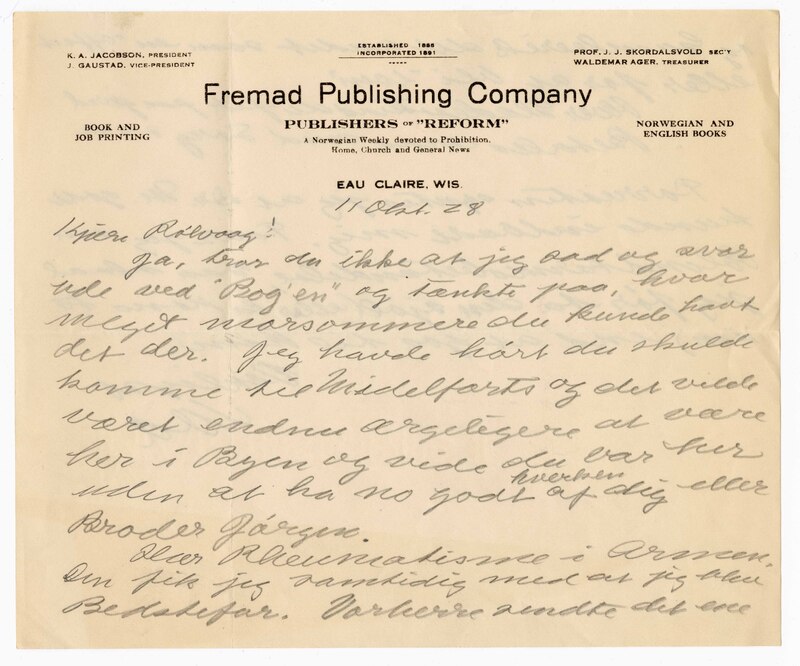 K. A. JACOBSON, PRESIDENT
J. GAUSTAD, VICE-PRESIDENT
ESTABLISHED 1886
INCORPORATED 1891
PROF. J. J. SKORDALSVOLD SEC'Y
WALDEMAR AGER, TREASURER
Fremad Publishing Company
BOOK AND
JOB PRINTING
PUBLISHERS OF "REFORM"
A Norwegian Weekly devoted to Prohibition,
Home, Church and General News
NORWEGIAN AND
ENGLISH BOOKS
EAU CLAIRE, WIS.
11 Okt. 28
Kjære Rølvaag!
Ja, tror du ikke at jeg sad og svor
ude ved "Bog'en" og tænkte paa, hvor
meget morsommere du kunde havt
det der. Jeg havde hørt du skulde
komme til Midelfarts og det vilde
været endnu ærgeligere at være
her i Byen og vide du var her
uden at ha no godt hverken af dig eller
Broder Jørgen.
Har Rheumatisme i Armen.
Den fik jeg samtidig med at jeg blev
Bedstefar. Vorherre sendte det ene